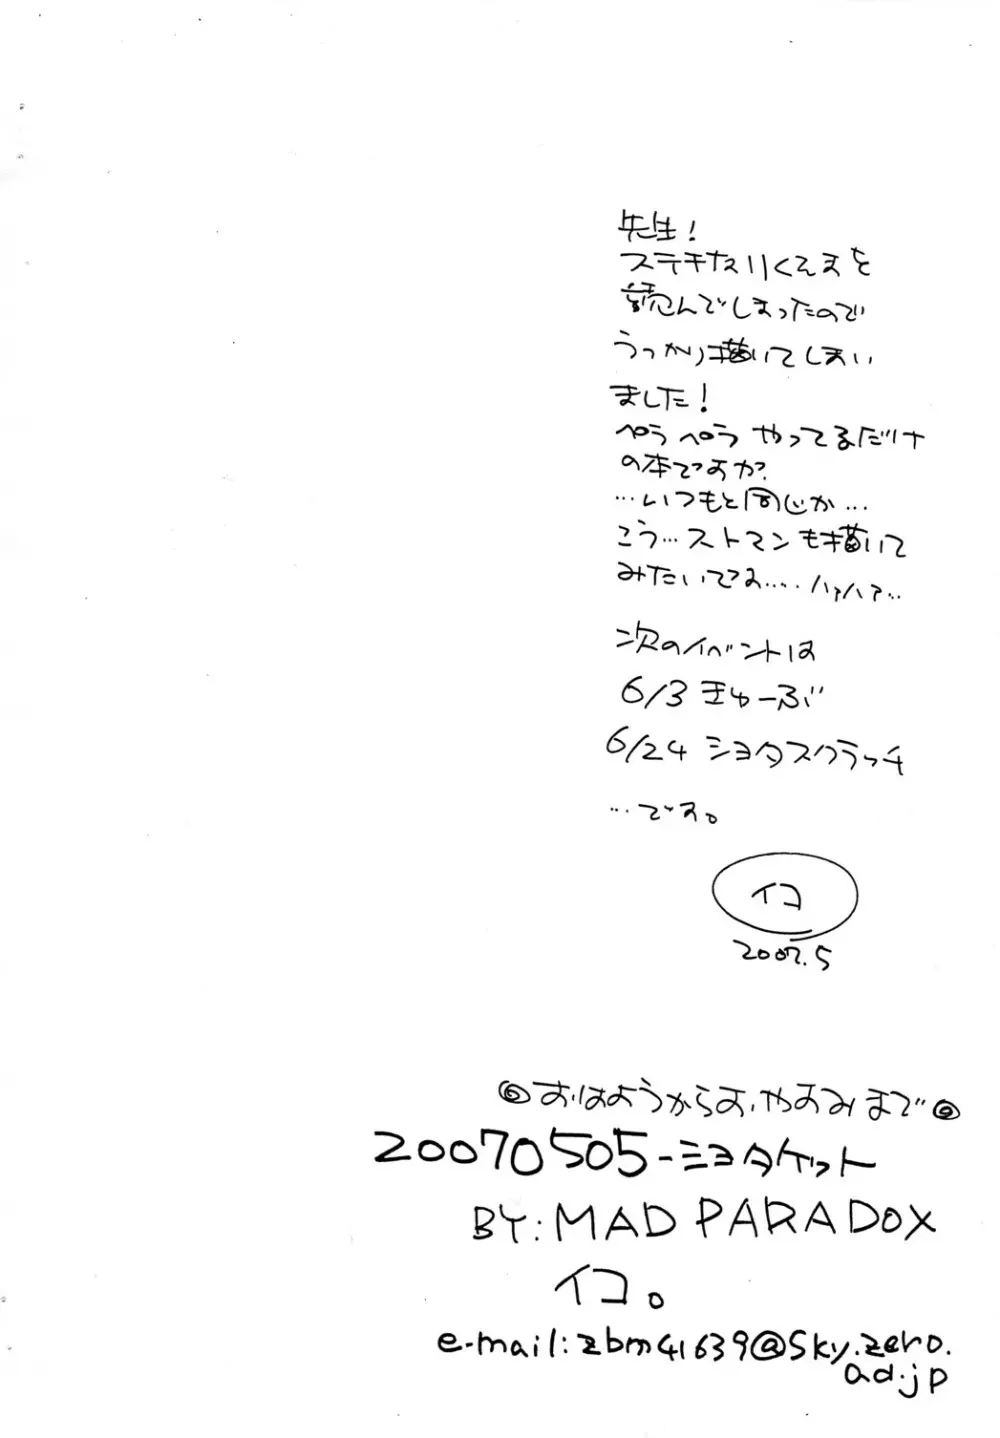 先生!
ステキなりくえすを
読んでしまったので
うっかり描いてしまい
ました!
ペラペラ やってるだけ
の本ですか?
…いつもと同じか…
こう…ストマンも描いて
みたいです….ハァハァ…
次のイベントは
6/3 きゅーぶ
6/24 ショタスクラッチ
…です。
イコ
2007.5
◎おはようからおやすみまで◎
20070505-ショタケット
BY:MAD PARADOX
イコ。
e-mail:zbm41639@sky.zero.
ad.jp